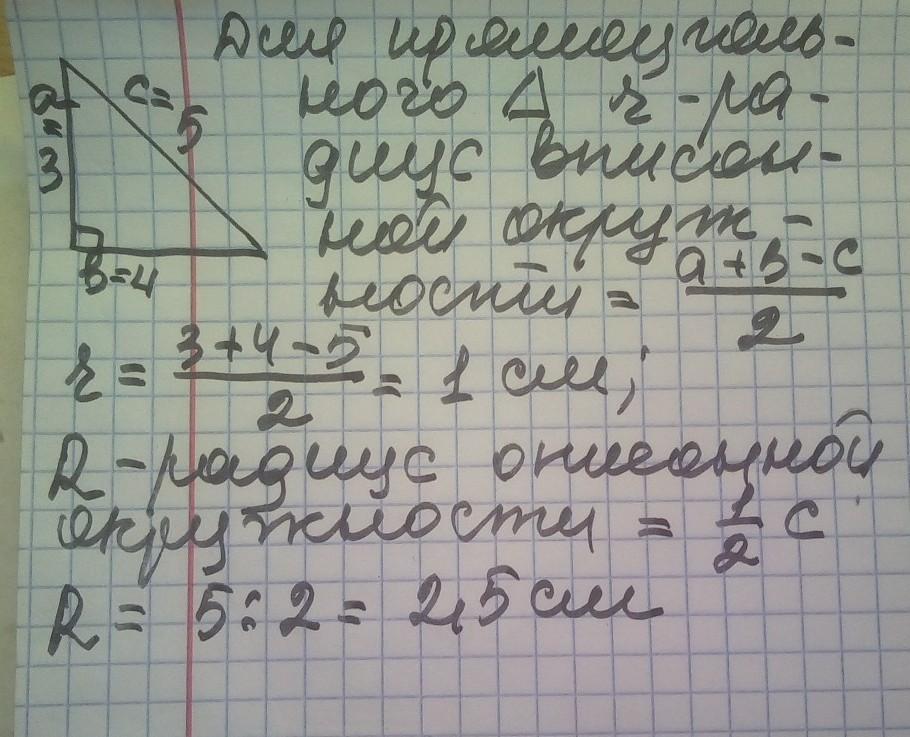 Для прямоуголь-
ного Δ r - ра-
диус вписан-
ной окруж-
ности = a+b-c / 2
a = 3
c = 5
b = 4
r = 3+4-5 / 2 = 1 см;
R - радиус описанной
окружности = 1/2 c
R = 5:2 = 2,5 см